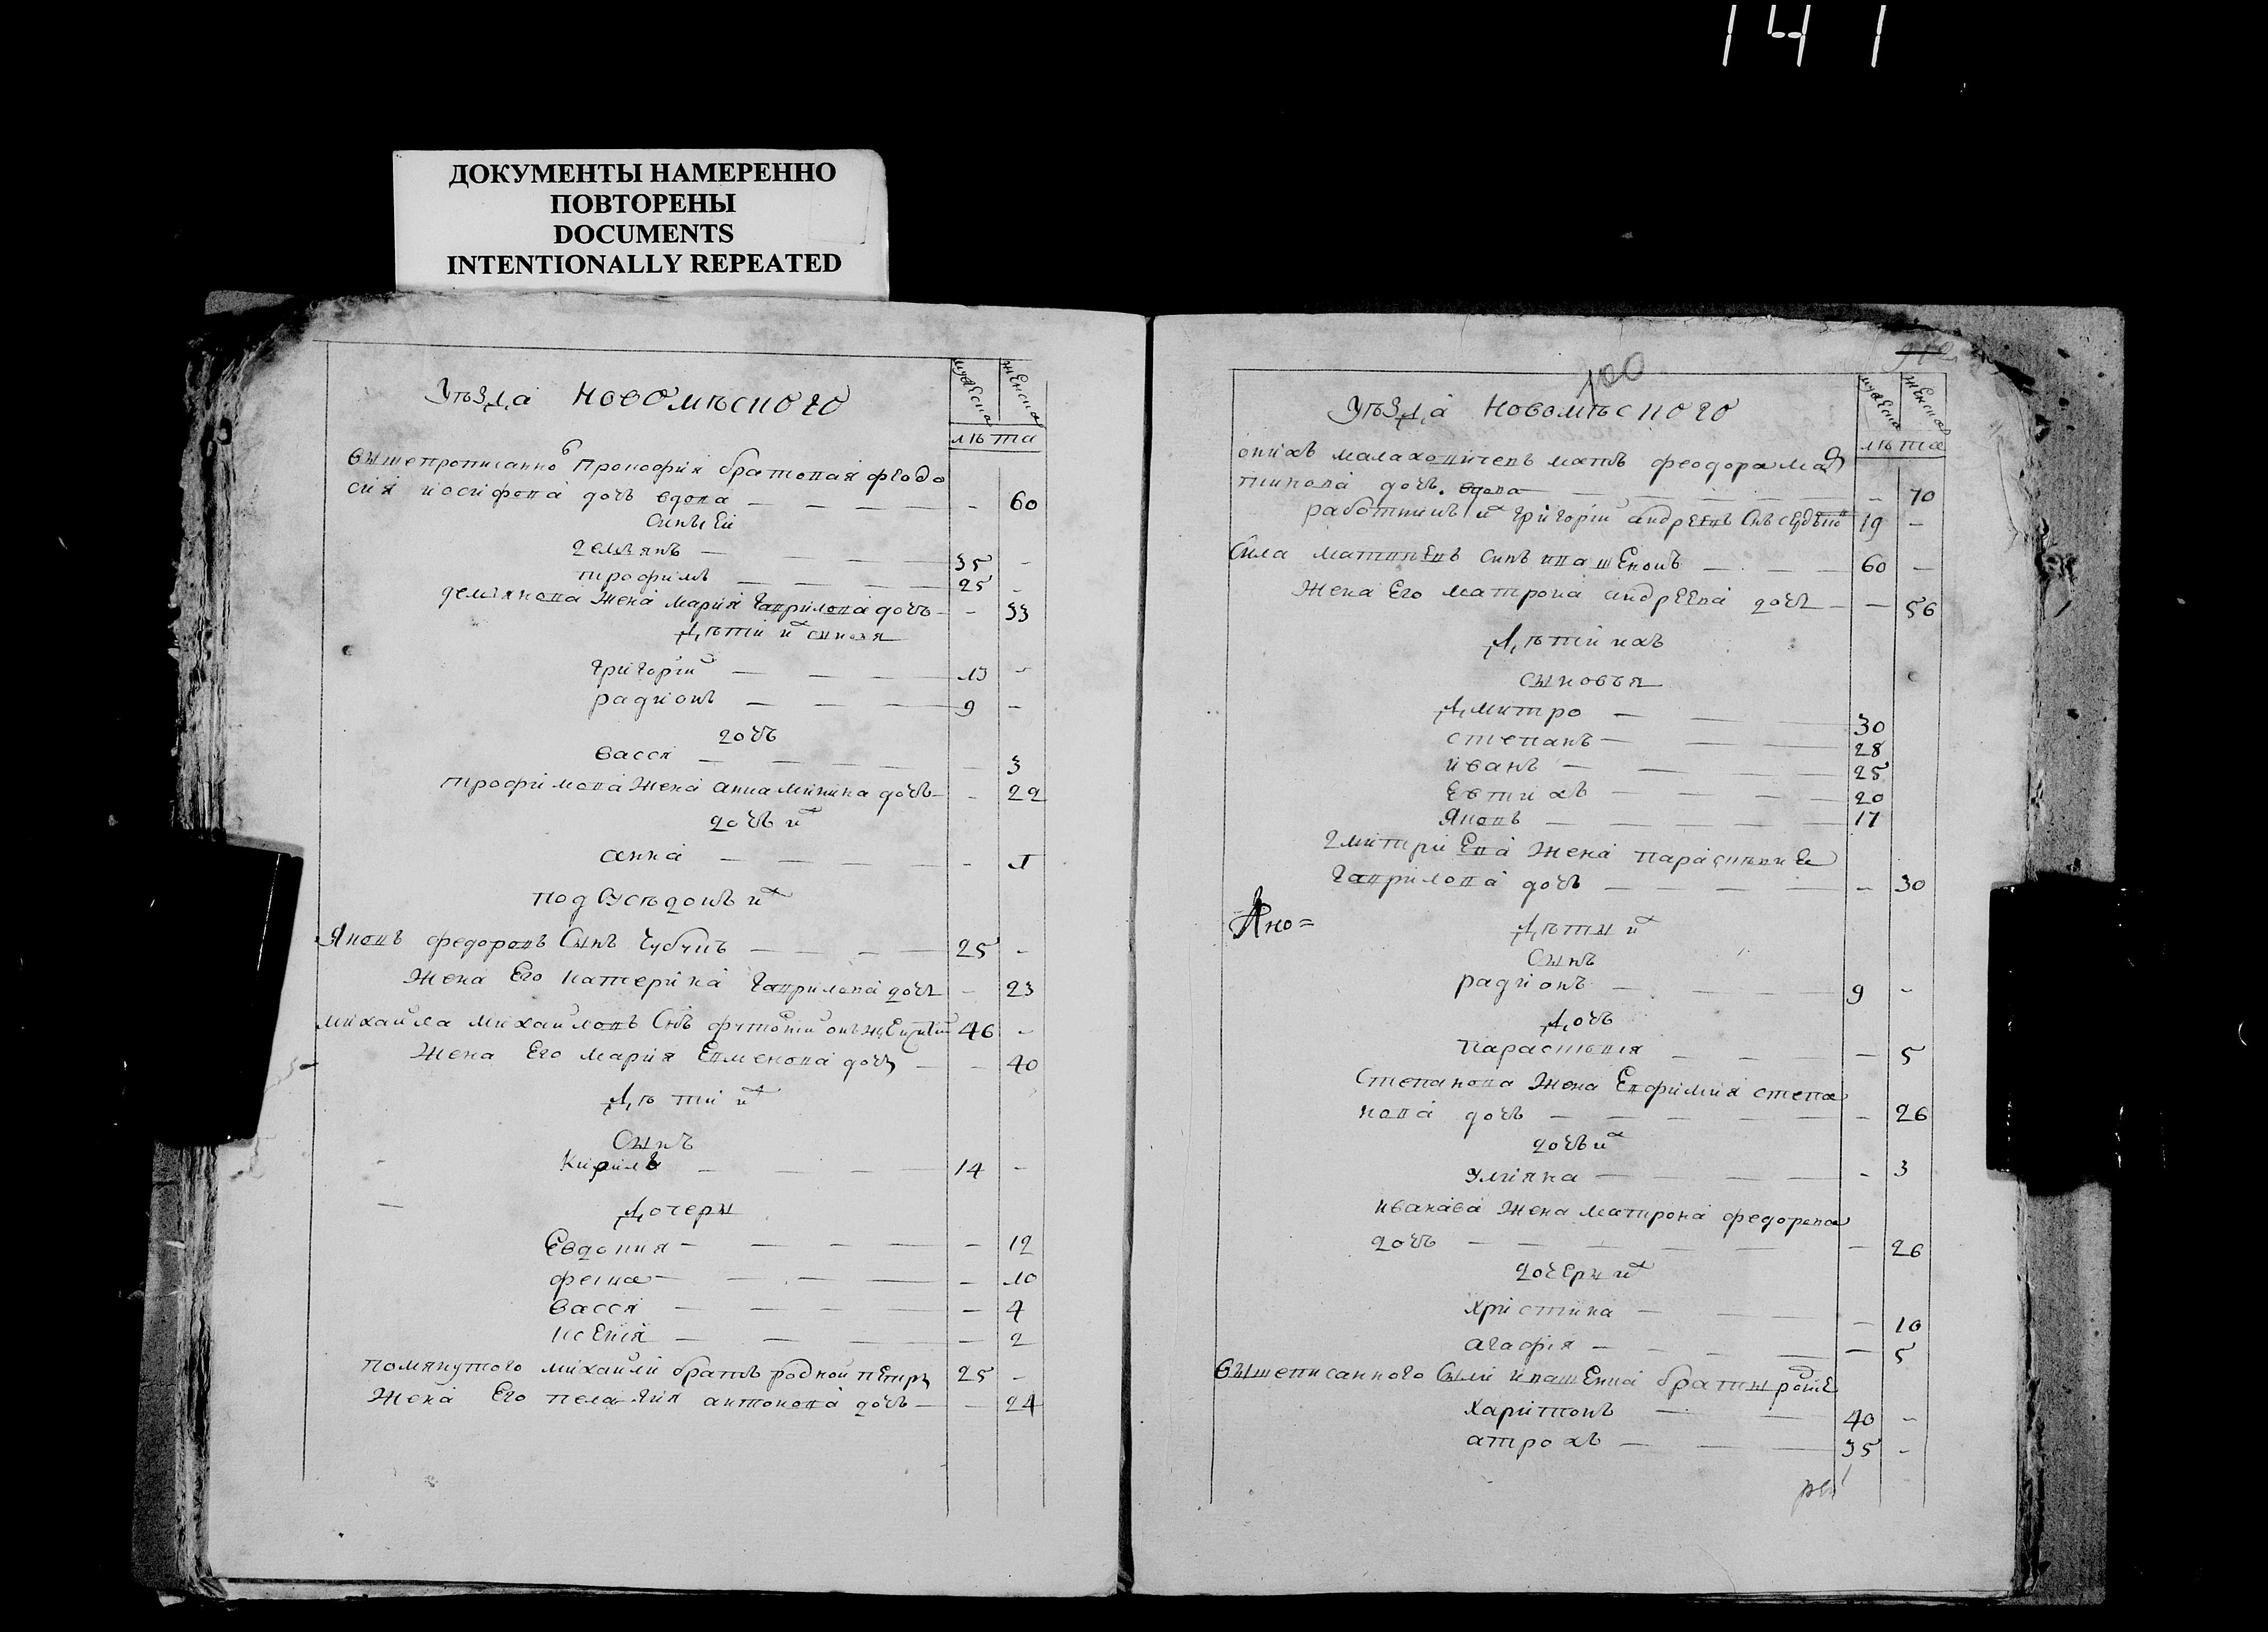 141
ДОКУМЕНТЫ НАМЕРЕННО
ПОВТОРЕНЫ
DOCUMENTS
INTENTIONALLY REPEATED
Уѣзда Новомѣского
мужеска
женска
лѣта
вышепрописанно Прокофия братовая феодо
сия иосифова дочь вдова — — — — - 60
Сины Ей
Демянъ — — — 35 -
трофимъ — — — 25 -
демянова Жена Мария Гаврилова дочъ - - 33
Дѣти их сыновя
Григорий — — — 13 -
радионъ — — — 9 -
дочъ
васся — — — - 3
трофимова Жена Анна Минина дочъ - - 22
дочъ их
анна — — — - 1
подсусѣдокъ их
Яковъ федоровъ Сынъ Чубчикъ — — — 25 -
Жена Его Катерина Гаврилова дочъ - 23
михайла михайловъ Снъ 46 -
Жена Его Мария Евменова дочъ — - 40
Дѣти их
Сынъ
Кирилъ — — — 14 -
Дочери
Евдокия — — — — - 12
фекла — — — — - 10
васся — — — — - 4
ксения — — — - 2
помянутого михайли братъ родной петръ 25 -
Жена Его пелагия антонова дочъ — - 24
100
Уѣзда Новомѣского
мужеска
женска
лѣта
онихъ малаховичевъ мать феодора Ма
тинова дочъ. вдова — — — - 70
работникъ их григорий андреевъ Снъ 19 -
Сила матвеевъ синъ ивашенокъ — — — 60 -
Жена Его матрона андреева дочъ — - 56
Дѣти ихъ
сыновья
Дмитро — — — 30
степанъ — — — 28
иванъ — — — 25
Евтихъ — — — 20
Яковъ — — — 17
Дмитриева Жена параскевия
Гаврилова дочъ — — — - 30
Яко=
Дѣти их
Сынъ
радионъ — — — 9 -
Дочъ
параскевия — — — 5
Степанова Жена Евфимия степа
нова дочъ — — — - 26
дочъ их
Улияна — — — - 3
иванава Жена матрона федорова
дочъ — — — — 26
дочери их
Христина — — — 10
агафия — — — — 5
вышеписанного Сили ивашенка браты родние
Харитонъ — — 40 -
атрохъ — — — 35 -